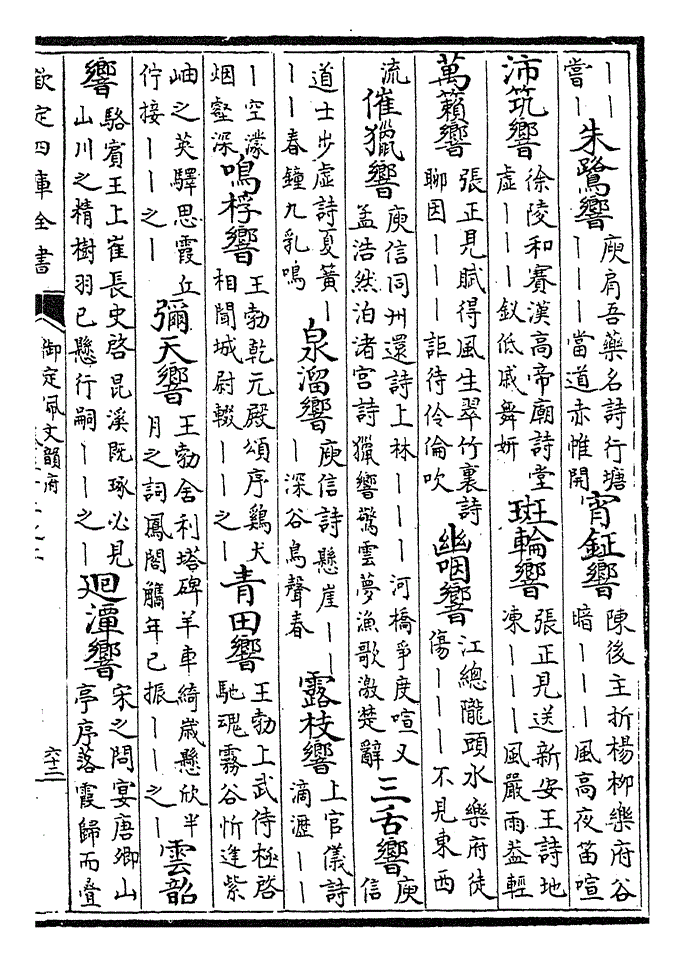 ｜｜嘗｜朱鷺響庾肩吾藥名詩行塘｜｜｜當道赤帷開宵鉦響陳後主折楊柳樂府谷暗｜｜｜風高夜笛喧
沛筑響徐陵和賽漢高帝廟詩堂虛｜｜｜釵低戚舞妍斑輪響張正見送新安王詩地凍｜｜｜風嚴雨益輕
萬籟響張正見賦得風生翠竹裏詩聊因｜｜｜詎待伶倫吹幽咽響江總隴頭水樂府徒傷｜｜｜不見東西
流催獵響庾信同州還詩上林｜｜｜河橋爭度喧又孟浩然泊渚宮詩獵響驚雲夢漁歌激楚辭三舌響庾信
道士步虛詩夏簧｜｜｜春鐘九乳鳴泉溜響庾信詩懸崖｜｜｜深谷鳥聲春露枝響上官儀詩滴瀝｜｜
｜空濛烟壑深鳴桴響王勃乾元殿頌序鷄犬相聞城尉輟｜｜之｜青田響王勃上武侍極啓馳魂霧谷忻逢紫
岫之英驛思霞丘佇接｜｜之｜彌天響王勃舍利塔碑羊車綺歲懸欣半月之詞鳳閣觿年已振｜｜之｜雲韶
響駱賓王上崔長史啓昆溪既琢必見山川之精樹羽已懸行嗣｜｜之｜迴潭響宋之問宴唐卿山亭序落霞歸而疊
欽定四庫全書
御定佩文韻府
六十二